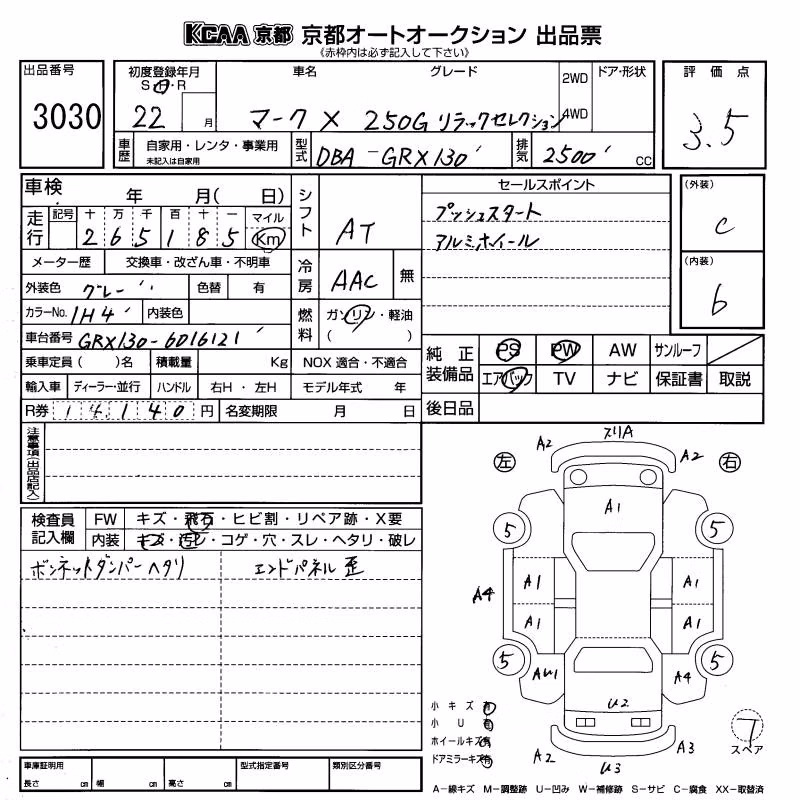 KCAA 京都 京都オートオークション 出品票
《赤枠内は必ず記入して下さい》
出品番号 3030
初度登録年月 S・H・R 22 月
車名 グレード 2WD 4WD ドア・形状
マークX 250G リラックセレクション
評価点 3.5
車歴 自家用・レンタ・事業用 未記入は自家用
型式 DBA-GRX130
排気 2500 cc
車検 年 月( 日)
走行 記号 十 万 千 百 十 一 マイル
2 6 5 1 8 5 Km
メーター歴 交換車・改ざん車・不明車
外装色 グレー 色替 有
カラーNo. 1H4 内装色
車台番号 GRX130-6016121
乗車定員( )名 積載量 Kg NOX 適合・不適合
輸入車 ディーラー・並行 ハンドル 右H・左H モデル年式 年
R券 14,140 円 名変期限 月 日
シフト AT
冷房 AAC 無
燃料 ガソリン・軽油
( )
セールスポイント
プッシュスタート
アルミホイール
(外装) C
(内装) b
純正装備品 PS PW AW サンルーフ
エアバック TV ナビ 保証書 取説
後日品
注意事項(出品店記入)
検査員記入欄 FW キズ・飛石・ヒビ割・リペア跡・X要
内装 キズ・汚レ・コゲ・穴・スレ・ヘタリ・破レ
ボンネットダンパーヘタリ エンドパネル歪
左 右
A2 スリA A2
A1
5 5
A4 A1 A1
A1 A1
5 5
AU1 A4
U2
A2 U3 A3
小キズ 有
小U 有
ホイールキズ 有
ドアミラーキズ 有
T スペア
車庫証明用 長さ cm 幅 cm 高さ cm 型式指定番号 類別区分番号
A-線キズ M-調整跡 U-凹み W-補修跡 S-サビ C-腐食 XX-取替済